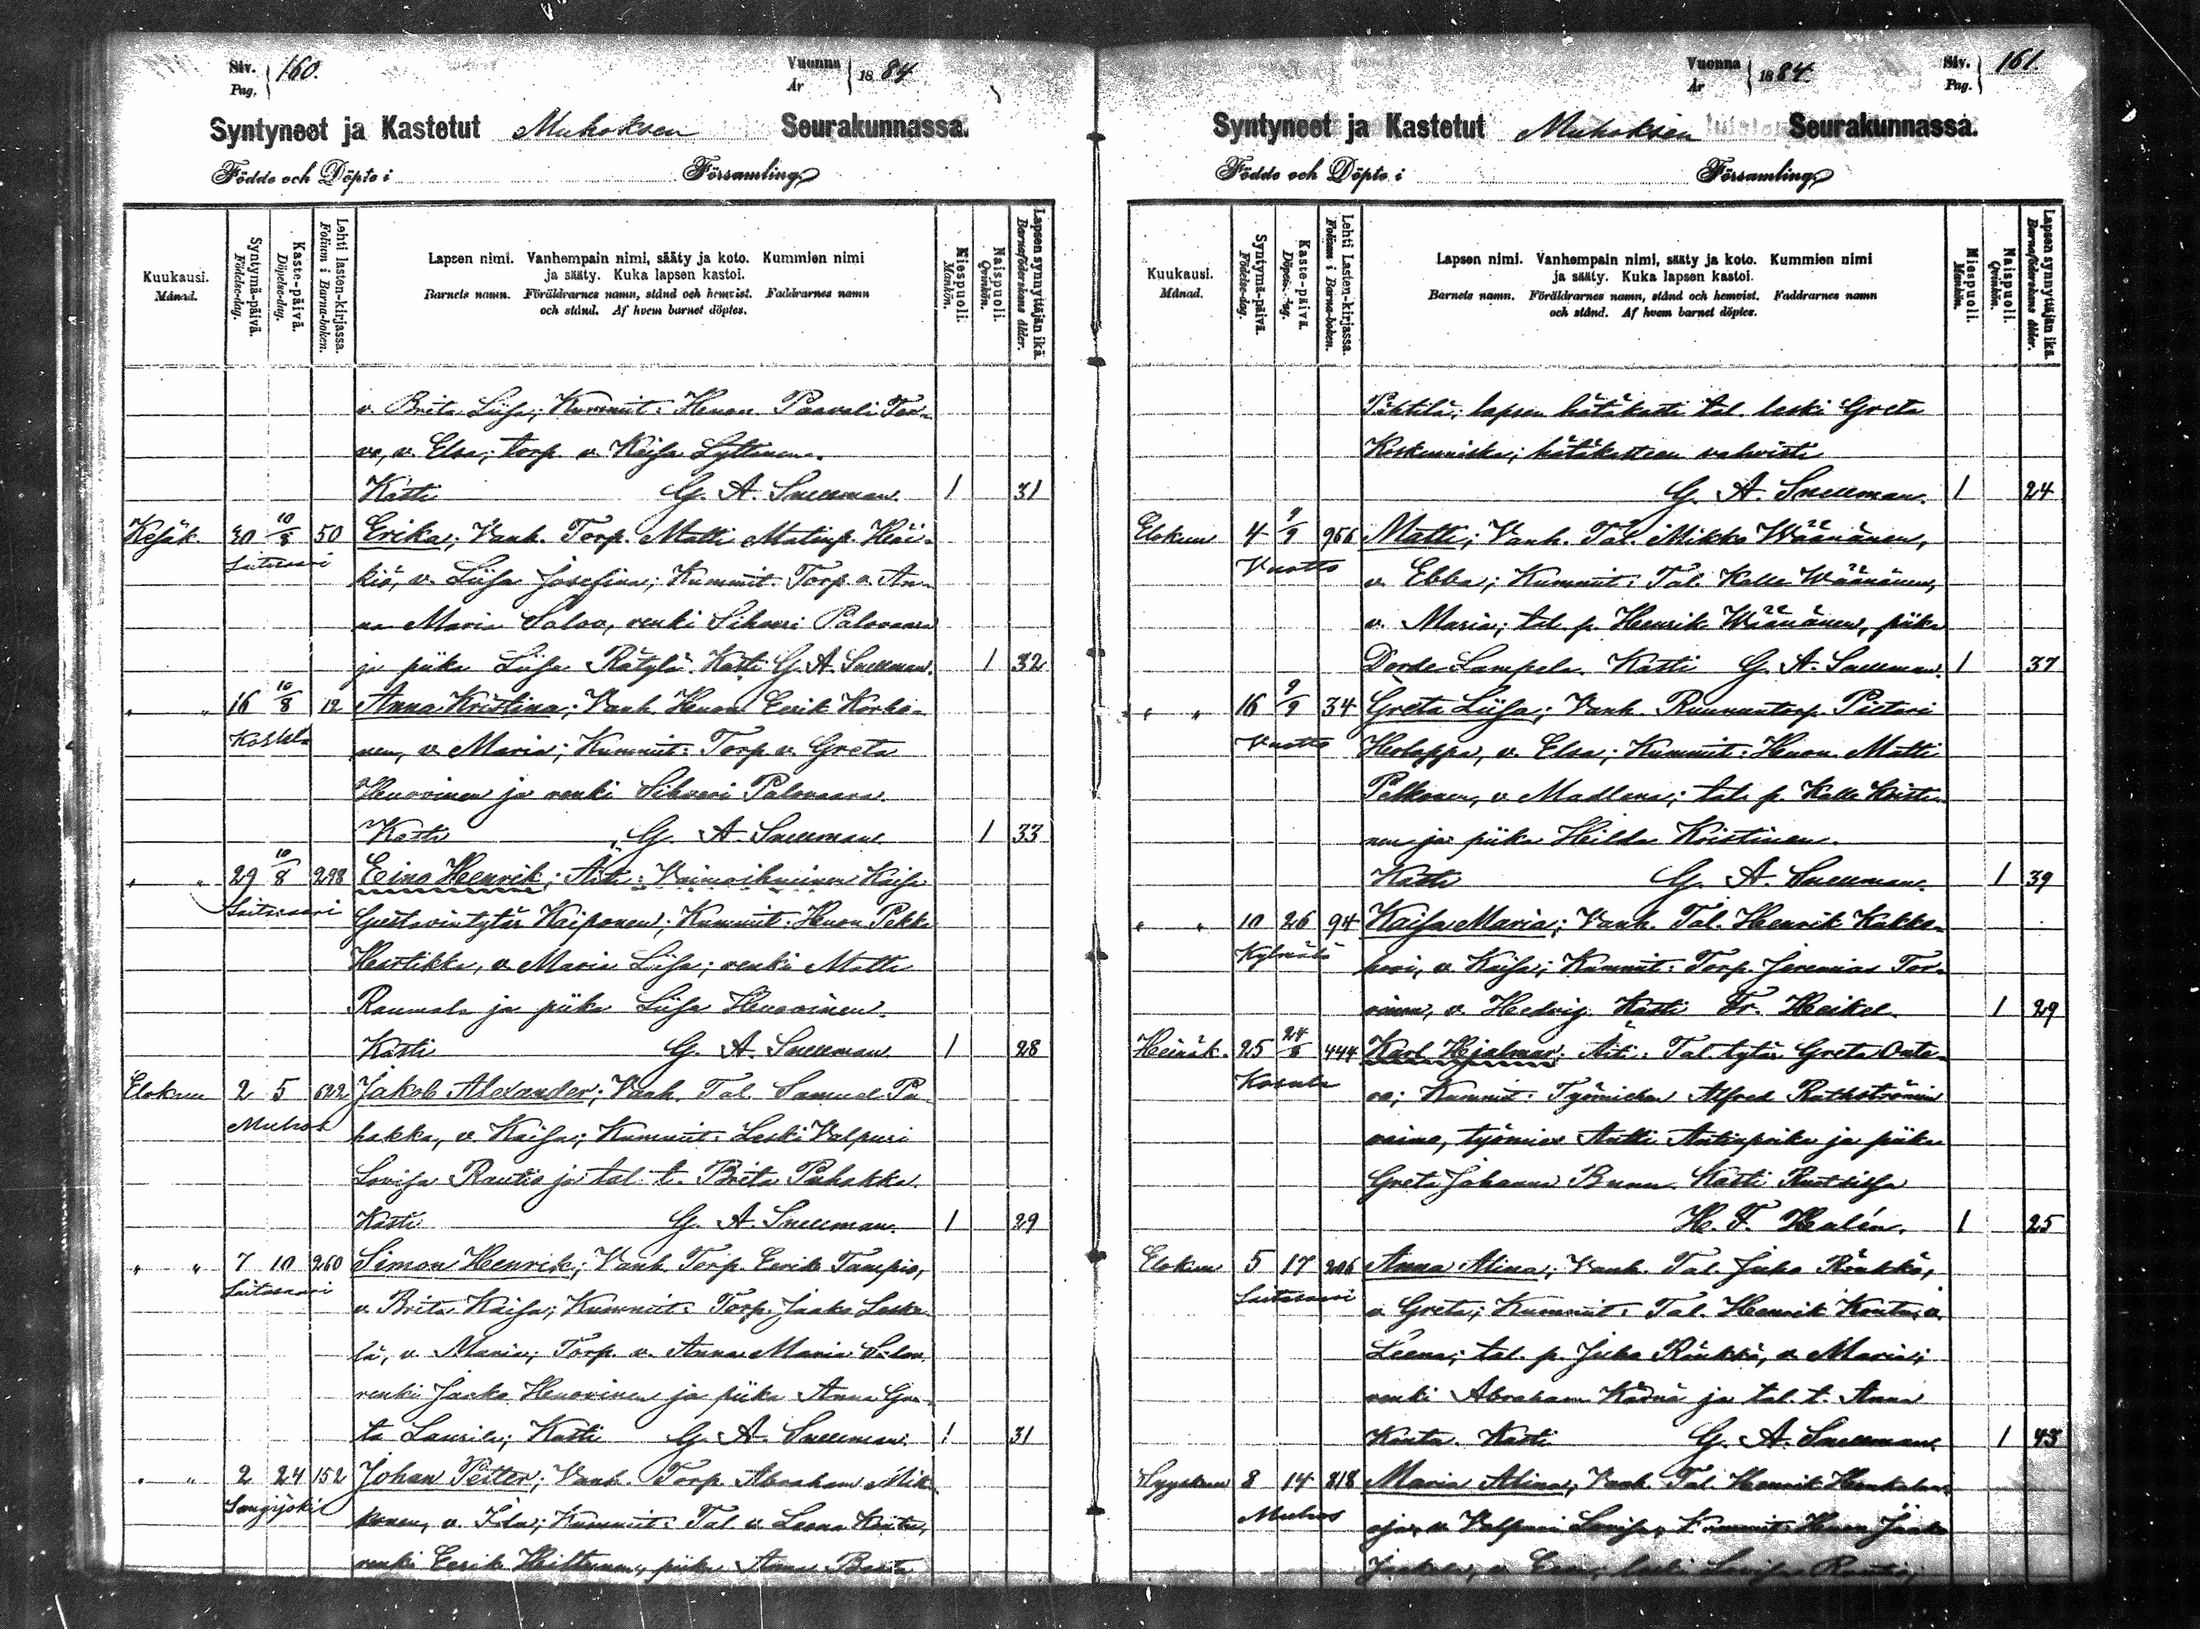 Siv. 160.
Pag.
Vuonna 1884
År
Syntyneet ja Kastetut Muhoksen Seurakunnassa.
Födde och Döpte i Församling
Kuukausi.
Månad.
Syntymä-päivä.
Födelse-dag.
Kaste-päivä.
Döpelse-dag.
Lehti lasten-kirjassa.
Folium i Barna-boken.
Lapsen nimi. Vanhempain nimi, sääty ja koto. Kummien nimi
ja sääty. Kuka lapsen kastoi.
Barnets namn. Föräldrarnes namn, stånd och hemvist. Faddrarnes namn
och stånd. Af hvem barnet döptes.
Miespuoli.
Mankön.
Naispuoli.
Qvinkön.
Lapsen synnyttäjän ikä.
Barnaföderskans ålder.
v. Brita Liisa; Kummit: Huon. Paavali Ter-
vo, v. Elsa; torp. v. Kaisa Lyttinen.
Kasti G. A. Snellman. 1 31
Kesäk. 30 10/8 50 Erika; Vanh. Torp. Matti Matinp. Häi-
kiö, v. Liisa Josefina; Kummit: Torp. v. An-
na Maria Saloo, renki Sihveri Palovaara
ja piika Liisa Rätylä. Kasti G. A. Snellman. 1 32
" " 16 10/8 12 Anna Kristina; Vanh. Huon. Eerik Korho-
Koskela
nen, v. Maria; Kummit: Torp. v. Greta
Huovinen ja renki Sihveri Palovaara.
Kasti G. A. Snellman. 1 33
" " 29 10/8 298 Eino Henrik; Äiti: Vaimoihminen Kaisa
Gustavintytär Kaiponen; Kummit: Huon. Pekka
Heurtikka, v. Maria Liisa; renki Matti
Raumala ja piika Liisa Huovinen.
Kasti G. A. Snellman 1 28
Elokuu 2 5 622 Jakob Alexander; Vanh. Tal. Samuel Pu-
Muhos
hakka, v. Kaisa; Kummit: Leski Valpuri
Lovisa Rautio ja tal. t. Brita Puhakka
Kasti G. A. Snellman. 1 29
" " 7 10 260 Simon Henrik; Vanh. Torp. Eerik Tampio,
v. Brita Kaisa; Kummit: Torp. Jaako Leske-
lä, v. Maria; Torp. v. Anna Maria Saloo,
renki Jaako Huovinen ja piika Anna Gre-
ta Laurila; Kasti G. A. Snellman. 1 31
" " 2 24 152 Johan Petter; Vanh. Torp. Abraham Mik-
Sangijoki
konen, v. Ida; Kummit: Tal. v. Leena Konta,
renki Eerik Hiltunen, piika Anna Brita
Vuonna 1884.
År
Siv. 161.
Pag.
Syntyneet ja Kastetut Muhoksen Seurakunnassa.
Födde och Döpte i Församling
Kuukausi.
Månad.
Syntymä-päivä.
Födelse-dag.
Kaste-päivä.
Döpelse-dag.
Lehti Lasten-kirjassa.
Folium i Barna-boken.
Lapsen nimi. Vanhempain nimi, sääty ja koto. Kummien nimi
ja sääty. Kuka lapsen kastoi.
Barnets namn. Föräldrarnes namn, stånd och hemvist. Faddrarnes namn
och stånd. Af hvem barnet döptes.
Miespuoli.
Mankön.
Naispuoli.
Qvinkön.
Lapsen synnyttäjän ikä.
Barnaföderskans ålder.
Pihtilä; lapsen hätäkasti tal. leski Greta
Koskenniska; hätäkasteen vahvisti
G. A. Snellman. 1 24
Elokuu 4 9/9 966 Matti; Vanh. Tal. Mikko Wäänänen,
Vuotto
v. Ebba; Kummit: Tal. Kalle Wäänänen,
v. Maria; tal. p. Henrik Wäänänen, piika
Dorde Lampela. Kasti G. A. Snellman. 1 37
" " 16 9/9 34 Greta Liisa; Vanh. Ruununtorp. Pietari
Vuotto
Holappa, v. Elsa; Kummit: Huon. Matti
Pelkonen, v. Madlena; tal. p. Kalle Kristi-
nen ja piika Hilda Kristinen.
Kasti G. A. Snellman. 1 39
" " 10 26 94 Kaisa Maria; Vanh. Tal. Henrik Kukko-
Kylmälä
hovi, v. Kaisa; Kummit: Torp. Jeremias Tor-
vinen, v. Hedvig. Kasti Fr. Heikel. 1 29
Heinäk. 25 24/8 444 Karl Hjalmar; Äiti: Tal. tytär Greta Outa-
Kosula
va; Kummit: Työmiehen Alfred Rathströmin
vaimo, työmies Antti Antinpoika ja piika
Greta Johanna Bunn. Kasti Ruotsissa
H. F. Halén. 1 25
Elokuu 5 17 206 Anna Alina; Vanh. Tal. Juho Rönkkö,
v. Greta; Kummit: Tal. Henrik Konta, v.
Leena; tal. p. Juho Rönkkö, v. Maria;
renki Abraham Kädnä ja tal. t. Anna
Konta. Kasti G. A. Snellman. 1 43
Syyskuu 8 14 818 Maria Alina; Vanh. Tal. Henrik Honkalan-
Muhos
oja, v. Valpuri Lovisa; Kummit: Huon. Jaako
Jaakola, v. Eeva; leski Lovisa Rautio;